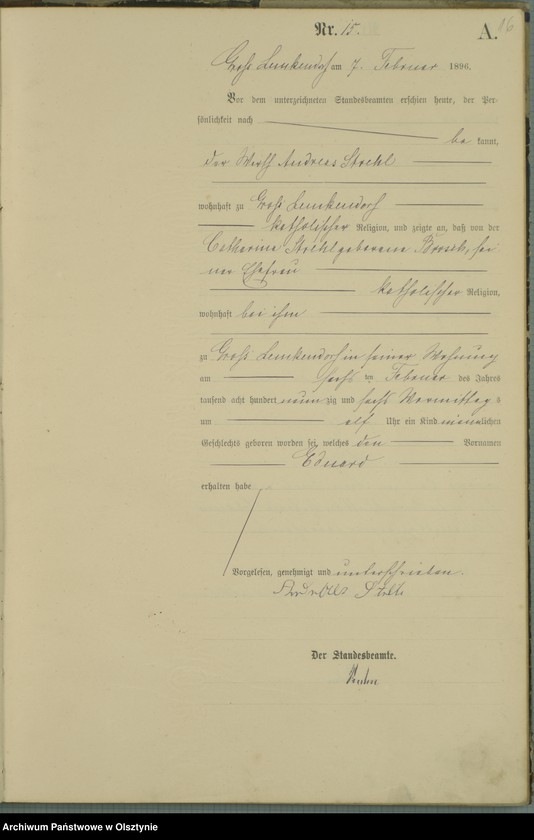 Nr. 15.
A. 16
Groß Lemkendorf am 7. Februar 1896.
Vor dem unterzeichneten Standesbeamten erschien heute, der Per-
sönlichkeit nach
be kannt,
der Wirth Andreas Strehl
wohnhaft zu Groß Lemkendorf
katholischer Religion, und zeigte an, daß von der
Catharina Strehl geborene sei-
ner Ehefrau
katholischer Religion,
wohnhaft bei ihm
zu Groß Lemkendorf in seiner Wohnung
am sechs ten Februar des Jahres
tausend acht hundert neun zig und sechs Vormittag s
um elf Uhr ein Kind männlichen
Geschlechts geboren worden sei, welches den Vornamen
Eduard
erhalten habe
Vorgelesen, genehmigt und unterschrieben
Andreas
Der Standesbeamte.
Archiwum Państwowe w Olsztynie